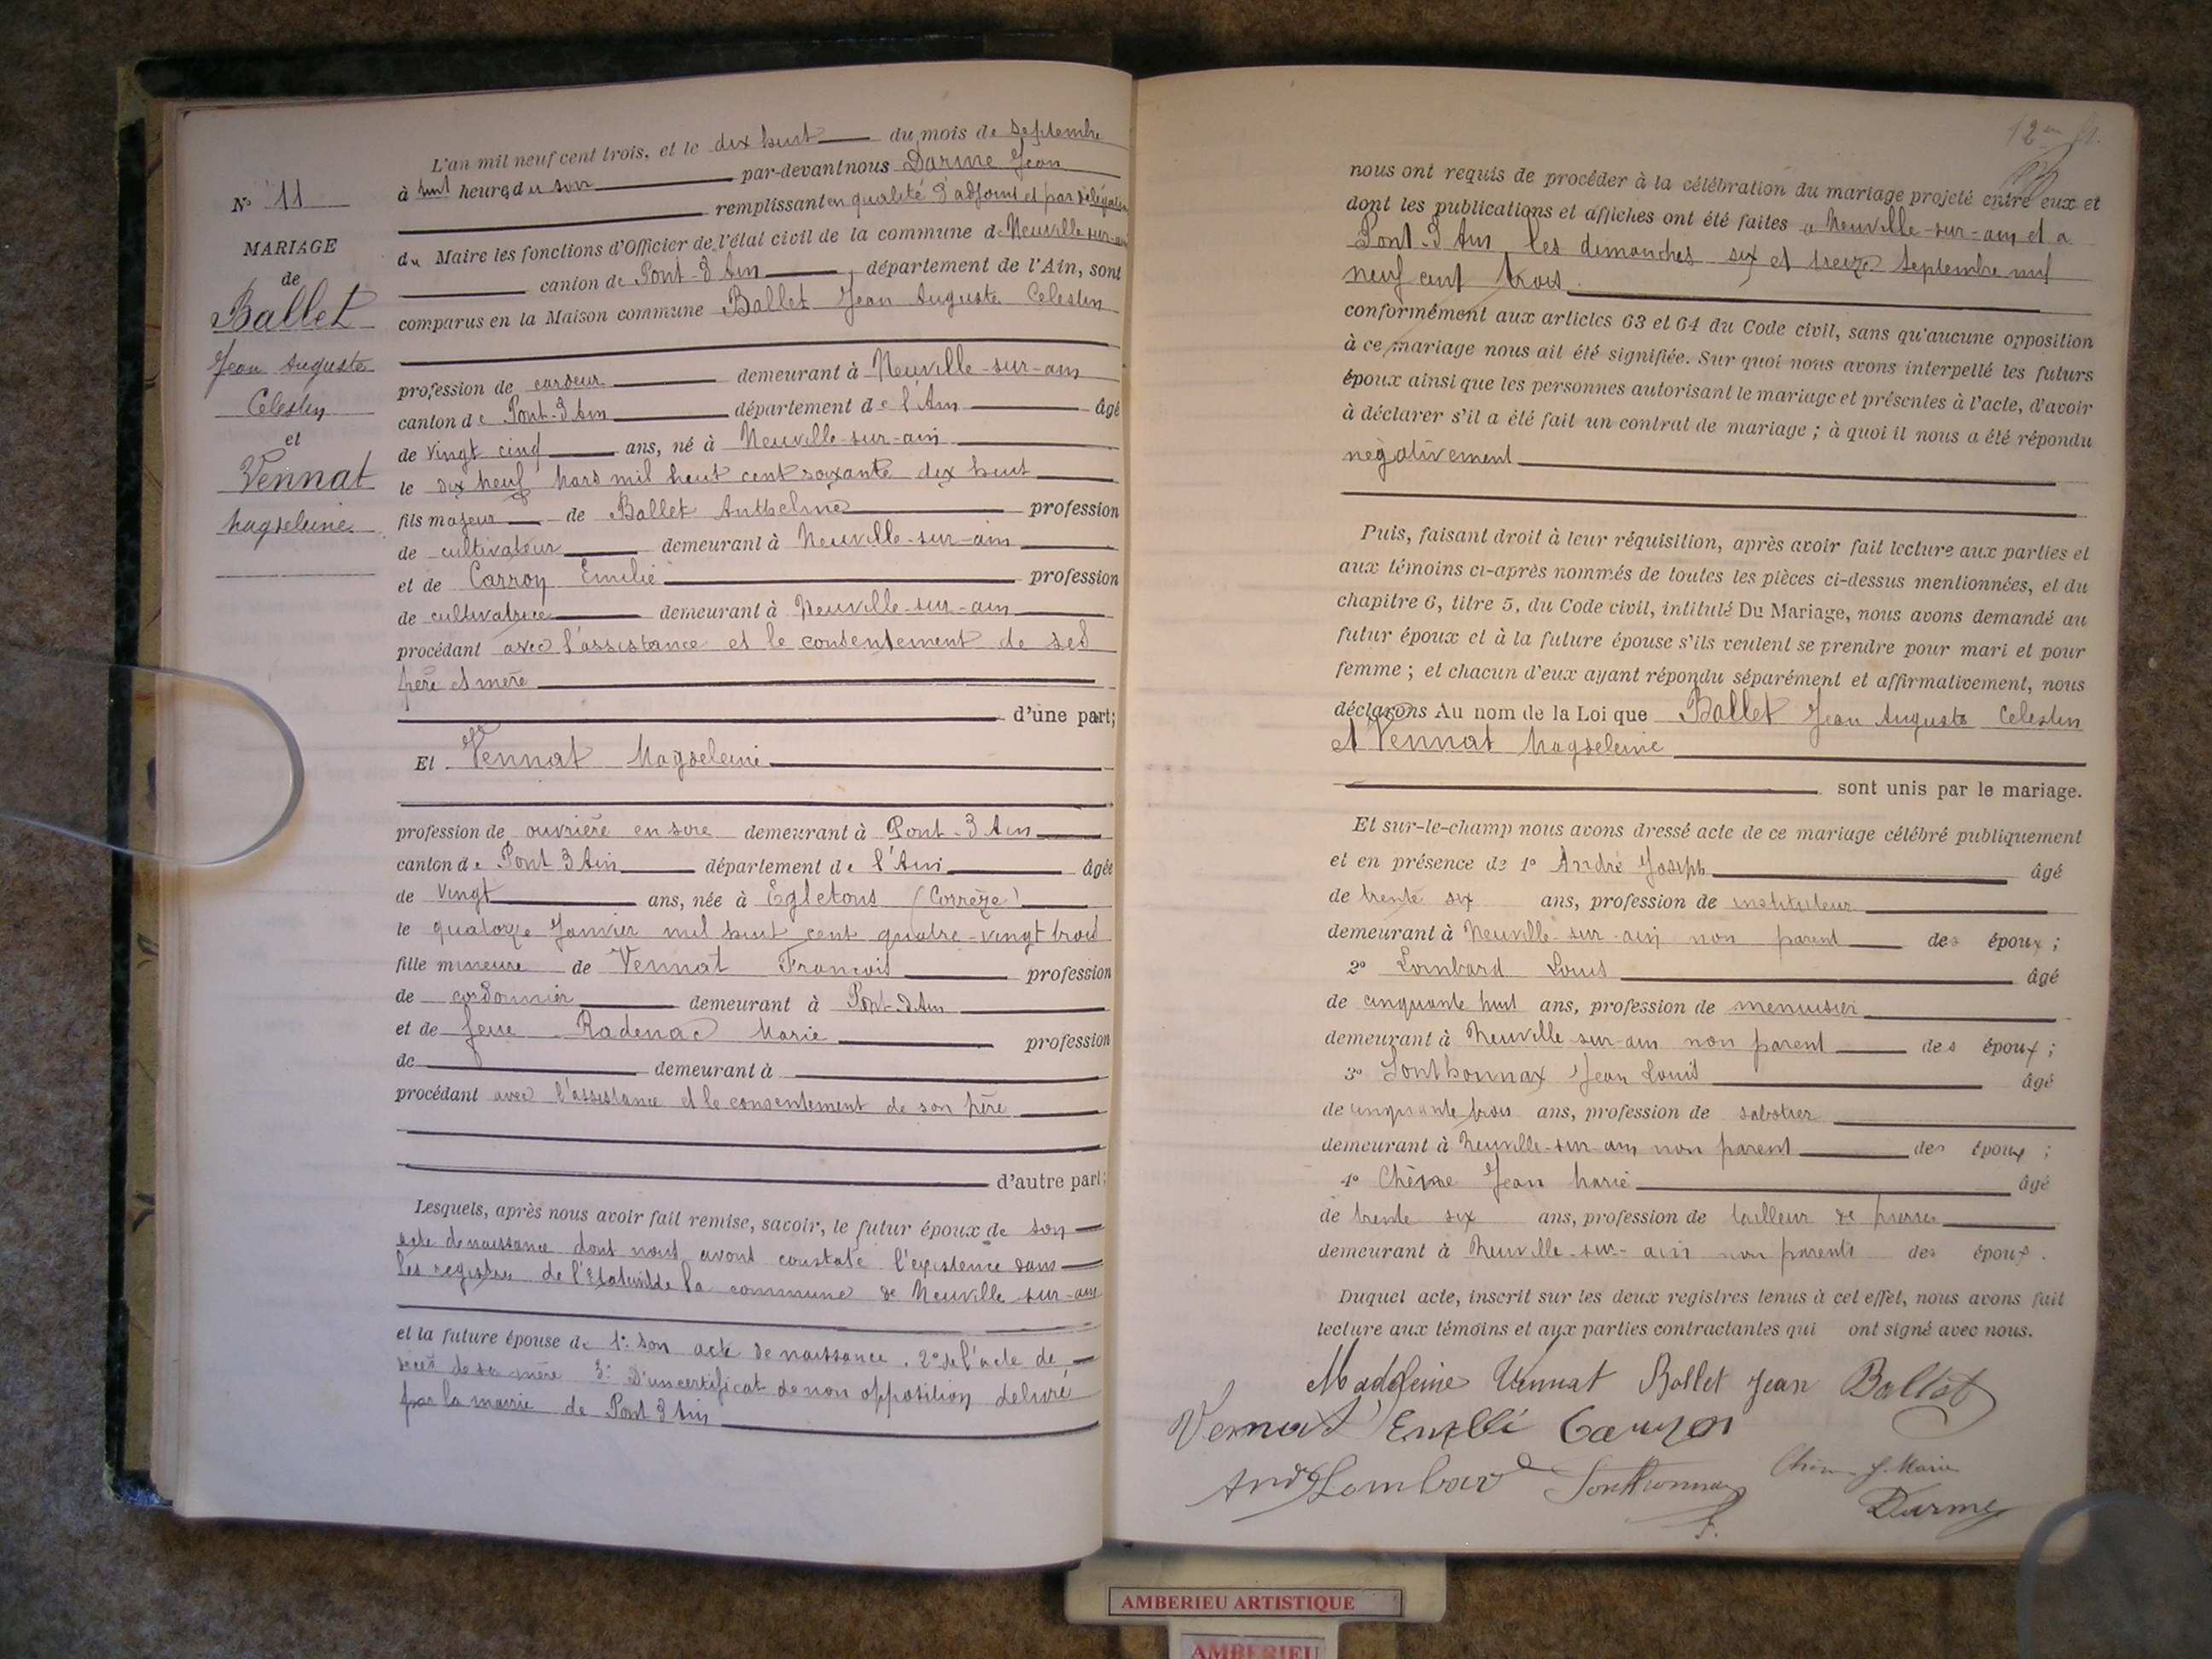 L'an mil neuf cent trois, et le dix huit du mois de Septembre
à huit heures du soir par-devant nous Darme Jean
remplissant en qualité d'adjoint et par délégation
du Maire les fonctions d'Officier de l'état civil de la commune de Neuville-sur-ain
canton de Pont-d'Ain, département de l'Ain, sont
comparus en la Maison commune Ballet Jean Auguste Celestin
profession de cardeur demeurant à Neuville-sur-ain
canton de Pont-d'Ain département de l'Ain âgé
de vingt cinq ans, né à Neuville-sur-ain
le dix neuf Mars mil huit cent soixante dix huit
fils majeur de Ballet Anthelme profession
de cultivateur demeurant à Neuville-sur-ain
et de Carron Emilie profession
de cultivatrice demeurant à Neuville-sur-ain
procédant avec l'assistance et le consentement de ses
père et mère
d'une part;
Et Vennat Magdeleine
profession de ouvrière en soie demeurant à Pont-d'Ain
canton de Pont d'Ain département de l'Ain âgée
de vingt ans, née à Egletons (Corrèze)
le quatorze Janvier mil huit cent quatre-vingt trois
fille mineure de Vennat François profession
de cordonnier demeurant à Pont-d'Ain
et de feue Radenac Marie profession
de demeurant à
procédant avec l'assistance et le consentement de son père
d'autre part;
Lesquels, après nous avoir fait remise, savoir, le futur époux de son
acte de naissance dont nous avons constaté l'existence dans
les registres de l'Etat civil de la commune de Neuville-sur-ain
et la future épouse de 1° son acte de naissance. 2° de l'acte de
décès de sa mère 3° D'un certificat de non opposition délivré
par la mairie de Pont d'Ain
N° 11
MARIAGE
de
Ballet
Jean Auguste
Celestin
et
Vennat
Magdeleine
nous ont requis de procéder à la célébration du mariage projeté entre eux et
dont les publications et affiches ont été faites à Neuville-sur-ain et à
Pont-d'Ain les dimanches six et treize Septembre mil
neuf cent trois
conformément aux articles 63 et 64 du Code civil, sans qu'aucune opposition
à ce mariage nous ait été signifiée. Sur quoi nous avons interpellé les futurs
époux ainsi que les personnes autorisant le mariage et présentes à l'acte, d'avoir
à déclarer s'il a été fait un contrat de mariage ; à quoi il nous a été répondu
négativement
Puis, faisant droit à leur réquisition, après avoir fait lecture aux parties et
aux témoins ci-après nommés de toutes les pièces ci-dessus mentionnées, et du
chapitre 6, titre 5, du Code civil, intitulé Du Mariage, nous avons demandé au
futur époux et à la future épouse s'ils veulent se prendre pour mari et pour
femme ; et chacun d'eux ayant répondu séparément et affirmativement, nous
déclarons Au nom de la Loi que Ballet Jean Auguste Celestin
et Vennat Magdeleine
sont unis par le mariage.
Et sur-le-champ nous avons dressé acte de ce mariage célébré publiquement
et en présence de 1° André Joseph âgé
de trente six ans, profession de instituteur
demeurant à Neuville-sur-ain non parent des époux ;
2° Lombard Louis âgé
de cinquante huit ans, profession de menuisier
demeurant à Neuville-sur-ain non parent des époux ;
3° Sonthonnax Jean Louis âgé
de cinquante trois ans, profession de sabotier
demeurant à Neuville-sur-ain non parent des époux ;
4° Chêne Jean Marie âgé
de trente six ans, profession de tailleur de pierres
demeurant à Neuville-sur-ain non parents des époux.
Duquel acte, inscrit sur les deux registres tenus à cet effet, nous avons fait
lecture aux témoins et aux parties contractantes qui ont signé avec nous.
Madeleine Vennat Ballet Jean Ballet
Vennat
Lombard Sonthonnax J. Marie
Darme
AMBERIEU ARTISTIQUE
AMBERIEU